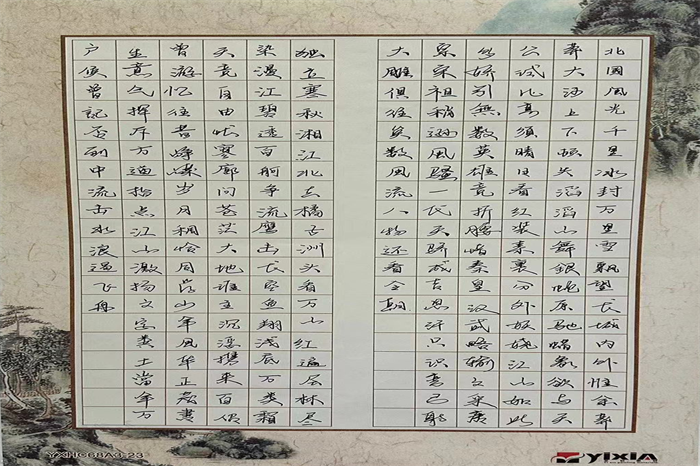 北國風光千里冰封万里雪飄望长城内外惟余莽
莽大河上下頓失滔滔山舞銀蛇原馳蜡象欲与天
公试比高須晴日看红装素裹分外妖娆江山如此
多娇引無数英雄竞折腰惜秦皇汉武略输文采唐
宗宋祖稍逊風騷一代天骄成吉思汗只识弯弓射
大雕俱往矣数風流人物还看今朝
独立寒秋湘江北去橘子洲头看万山红遍层林尽
染漫江碧透百舸争流鹰击长空鱼翔浅底万类霜
天竞自由怅寥廓问苍茫大地谁主沉浮携来百侣
曾游忆往昔峥嵘岁月稠恰同学少年风华正茂书
生意气挥斥方遒指点江山激扬文字粪土当年万
户侯曾记否到中流击水浪遏飞舟
YXHC68A3-23
YIXIA